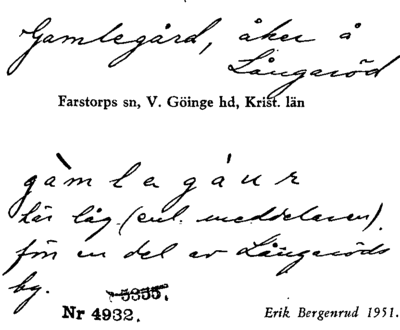 Gamlegård, åker å
Långaröd
Farstorps sn, V. Göinge hd, Krist. län
gàmlagáuR
här låg (enl. meddelaren)
för en del av Långaröds
by.
5355.
Nr 4932.
Erik Bergenrud 1951.